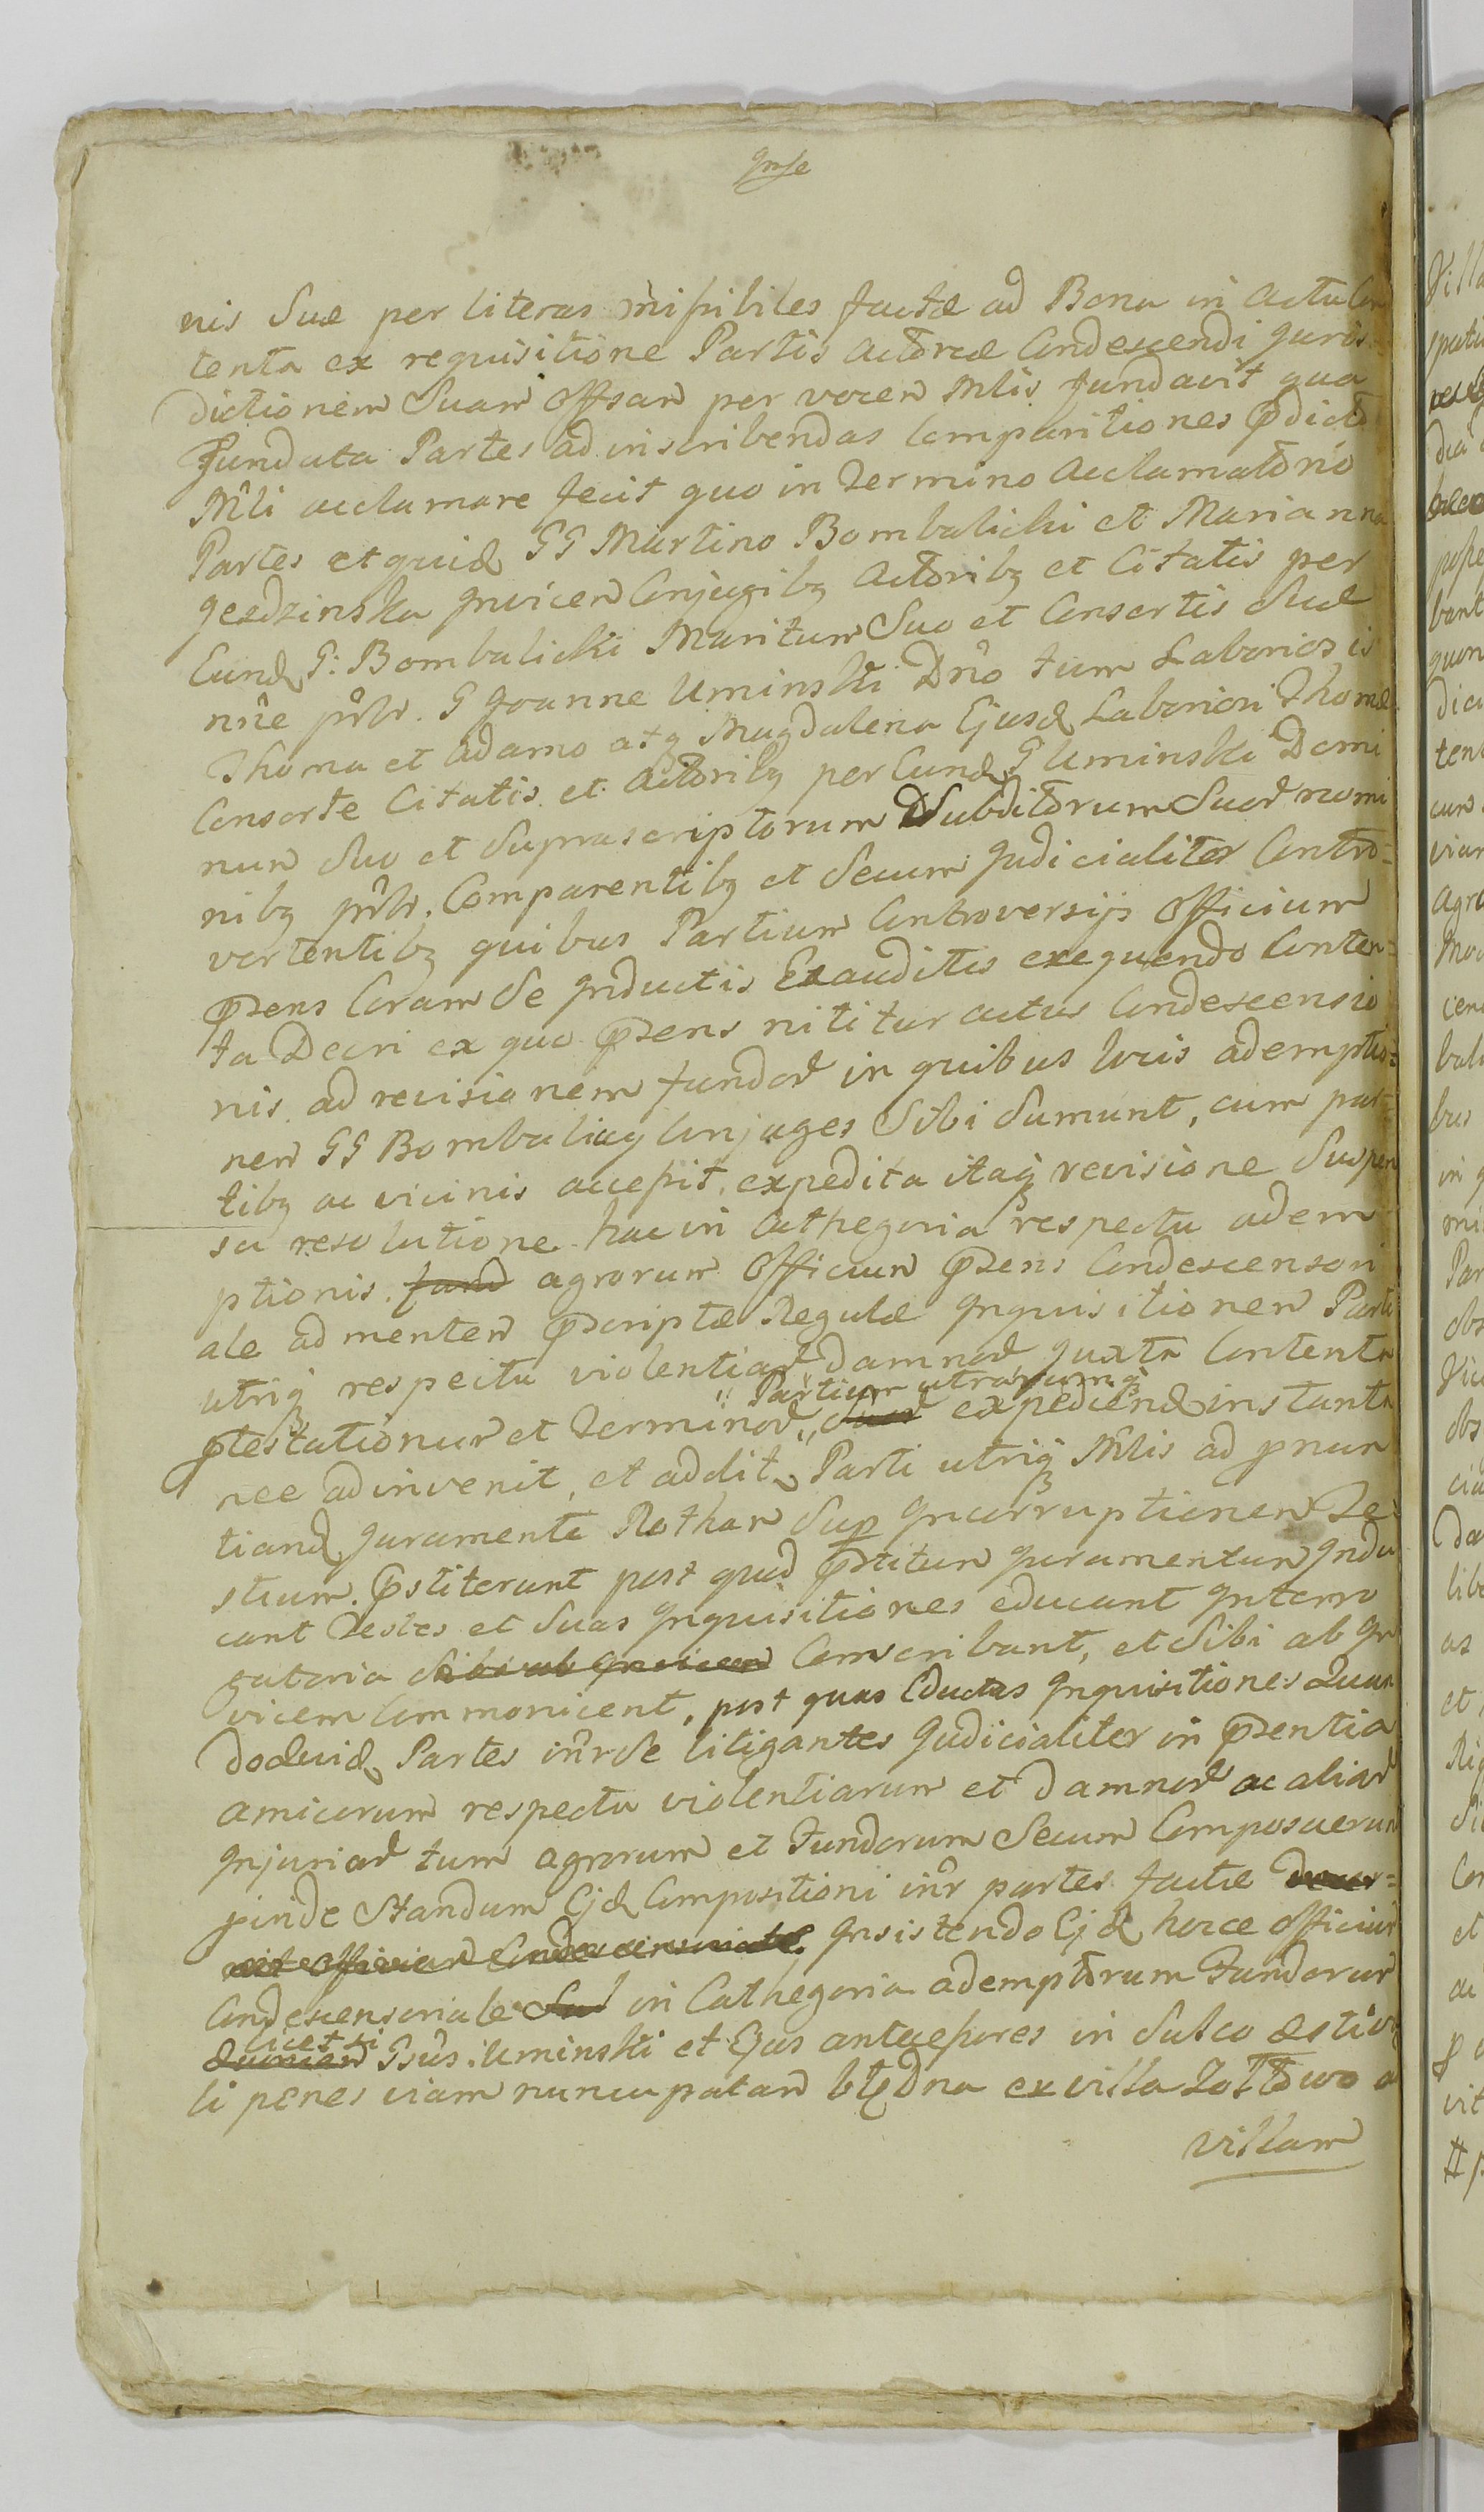 nis Suæ per literas missibiles factæ ad Bona in Actu Con
tenta ex requisitione Partis Actoreæ Condescendi Juris
dictionem Suam Offsam per vocem Mlis fundavit qua
Fundata Partes ad inscribendas Comparitiones pdicto
Mli acclamare fecit quo in Termino Acclamatorio
Partes et quid. GG Martino Bombalicki et Marianna
Invicem Conjugibq Actoribq et Citatis per
Eund. G: Bombalicki Maritum Suo et Consortis Suæ
nne pntr. G Joanne Uminski Dno tum Laboriosis
Thoma et Adamo atq Magdalena Ejusd. Laboriosi Thomæ
Consorte Citatis et Actoribq per Eund. G Uminski Domi
num Suo et Suprascriptorum Subditorum Suor nomi
nibq pntr. Comparentibq et Secum Judicialiter Contro=
vertentibq quibus Partium Controversijs Officium
pzens Coram Se Inductis Exauditis exequendo Conten=
ta Decri ex quo pzens nititur actus Condescensio
nis ad revisionem fundor in quibus locis ademptio=
nem GG Bombaliccy Conjuges Sibi Sumunt, cum par
tibq ac vicinis accessit, expedita itaq revisione Suspen
sa resolutione hac in Cathegoria respectu adem
ptionis fund agrorum Officium pzens Condescensori
ale ad mentem pscriptæ Regulæ Inquisitionem Parti
utriq respectu violentiar damnor, Juxta Contenta
Partium utrarumq
ptestationum et Terminor, Suor expediend. instanta
nee adinvenit, et addit. Parti utriq Mlis ad pnun
tiand. Juramenti Rotham Sup Incorruptionem Te
stium pstiterunt post quod pstitum Juramentum Indu
cant Testes et Suas Inquisitiones educant Interro
gatoria Sibi ab Invicem Conscribant, et Sibi ab In
vicem Communicent, post quas Eductas Inquisitiones Quan
doquid. Partes inr Se litigantes Judicialiter in pzentia
amicorum respectu violentiarum et damnor ac aliar
Injuriar tum agrorum et Fundorum Secum Composuerunt
pinde Standum Ejd. Compositioni inr partes factæ
Officium Insistendo Ejd. hocce Officium
Condescensoriale in Cathegoria ademptorum Fundorum
licet
Gsus Uminski et Ejus antecessores in Sulco
li penes viam nuncupatam ex villa
villam